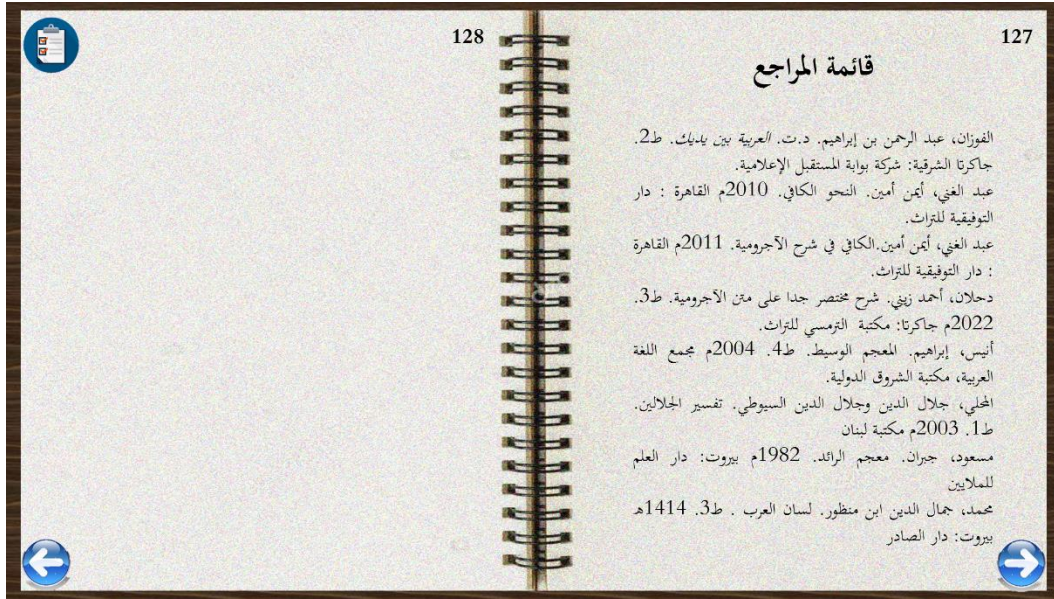 127
قائمة المراجع
الفوزان، عبد الرحمن بن إبراهيم. د.ت. العربية بين يديك. ط2.
جاكرتا الشرقية: شركة بوابة المستقبل الإعلامية.
عبد الغني، أيمن أمين. النحو الكافي. 2010م القاهرة : دار
التوفيقية للتراث.
عبد الغني، أيمن أمين.الكافي في شرح الآجرومية. 2011م القاهرة
: دار التوفيقية للتراث.
دحلان، أحمد زيني. شرح مختصر جدا على متن الآجرومية. ط3.
2022م جاكرتا: مكتبة الترمسي للتراث.
أنيس، إبراهيم. المعجم الوسيط. ط4. 2004م مجمع اللغة
العربية، مكتبة الشروق الدولية.
المحلي، جلال الدين وجلال الدين السيوطي. تفسير الجلالين.
ط1. 2003م مكتبة لبنان
مسعود، جبران. معجم الرائد. 1982م بيروت: دار العلم
للملايين
محمد، جمال الدين ابن منظور. لسان العرب . ط3. 1414هـ
بيروت: دار الصادر
128